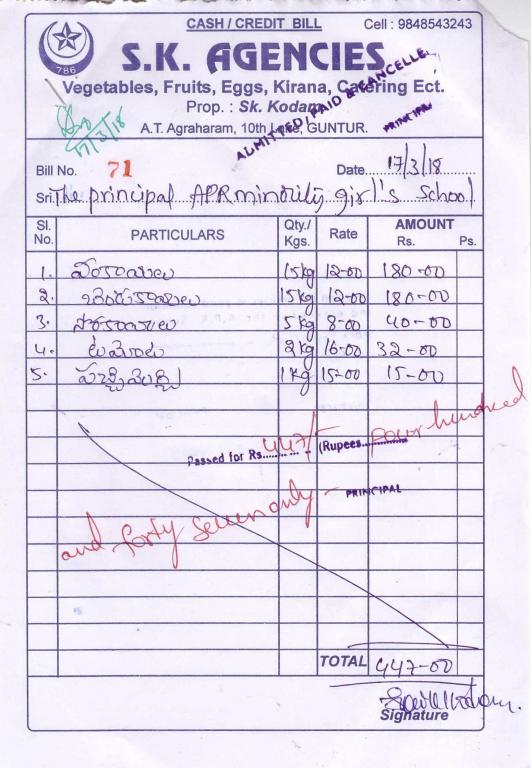 CASH / CREDIT BILL Cell : 9848543243
786
S.K. AGENCIES
Vegetables, Fruits, Eggs, Kirana, Catering Ect.
Prop. : Sk. Kodam
A.T. Agraharam, 10th Lane, GUNTUR.
ADMITTED / PAID & CANCELLE
PRINCIPAL
17/3/18
Bill No. 71 Date 17/3/18
Sri The principal APR minority girl's school
Sl. No. PARTICULARS Qty./ Kgs. Rate AMOUNT Rs. Ps.
1. వంకాయలు 15kg 12-00 180-00
2. బెండకాయలు 15kg 12-00 180-00
3. సొరకాయలు 5kg 8-00 40-00
4. టమోటాలు 2kg 16-00 32-00
5. పచ్చిమిర్చి 1kg 15-00 15-00
Passed for Rs. 447/- (Rupees four hundred
and forty seven only -
PRINCIPAL
TOTAL 447-00
Signature